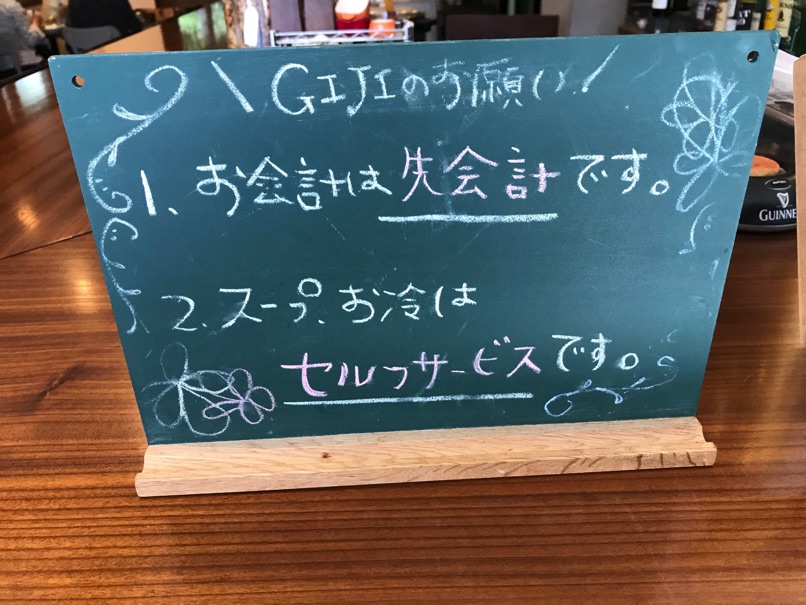 \ GIJIのお願い /
1、お会計は先会計です。
2、スープ、お冷は
セルフサービスです。
GUINNE